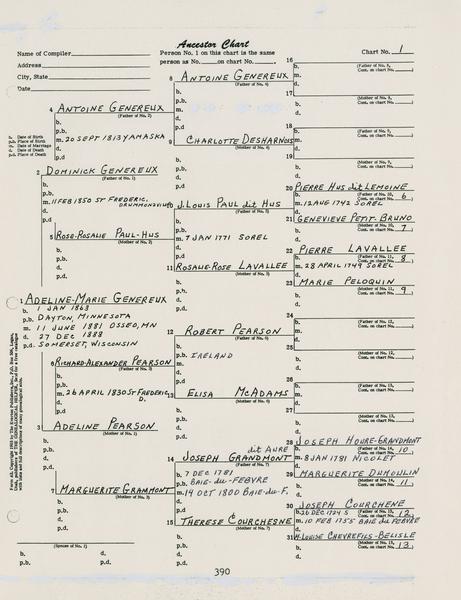 Ancestor Chart
Name of Compiler
Person No. 1 on this chart is the same
person as No. on chart No. .
Chart No. 1
Address
City, State
Date
b. Date of Birth
p.b. Place of Birth
m. Date of Marriage
d. Date of Death
p.d. Place of Death
16
b. (Father of No. 8,
m. Cont. on chart No. )
d.
8 ANTOINE GENEREUX
b. (Father of No. 4)
p.b.
m.
d.
p.d
17
b. (Mother of No. 8,
d. Cont. on chart No. )
4 ANTOINE GENEREUX
b. (Father of No. 2)
p.b.
m. 20 SEPT 1813 YAMASKA
d.
p.d.
18
b. (Father of No. 9,
m. Cont. on chart No. )
d.
9 CHARLOTTE DESHARNUS
b. (Mother of No. 4)
p.b.
d.
p.d
19
b. (Mother of No. 9,
d. Cont. on chart No. )
2 DOMINICK GENEREUX
b. (Father of No. 1)
p.b.
m. 11 FEB 1850 ST FREDERIC,
DRUMMONDVILLE
d.
p.d.
20 PIERRE HUS dit LEMOINE
b. (Father of No. 10, 6
m. 12 AUG 1742 SOREL
d.
10 J. LOUIS PAUL dit HUS
b. (Father of No. 5)
p.b.
m. 7 JAN 1771 SOREL
d.
p.d
21 GENEVIEVE PETIT-BRUNO
b. (Mother of No. 10, 7
d. Cont. on chart No. )
5 ROSE-ROSALIE PAUL-HUS
b. (Mother of No. 2)
p.b.
d.
p.d.
22 PIERRE LAVALLEE
b. (Father of No. 11, 8
m. 28 APRIL 1749 SOREL
d.
11 ROSALIE-ROSE LAVALLEE
b. (Mother of No. 5)
p.b.
d.
p.d
23 MARIE PELOQUIN
b. (Mother of No. 11, 9
d. Cont. on chart No. )
1 ADELINE-MARIE GENEREUX
b. 1 JAN 1863
p.b. DAYTON, MINNESOTA
m. 11 JUNE 1881 OSSEO, MN
d. 27 DEC 1888
p.d. SOMERSET, WISCONSIN
24
b. (Father of No. 12,
m. Cont. on chart No. )
d.
12 ROBERT PEARSON
b. (Father of No. 6)
p.b. IRELAND
m.
d.
p.d
25
b. (Mother of No. 12,
d. Cont. on chart No. )
6 RICHARD-ALEXANDER PEARSON
b. (Father of No. 3)
p.b.
m. 26 APRIL 1830 ST FREDERIC,
D.
d.
p.d.
26
b. (Father of No. 13,
m. Cont. on chart No. )
d.
13 ELISA MCADAMS
b. (Mother of No. 6)
p.b.
d.
p.d
27
b. (Mother of No. 13,
d. Cont. on chart No. )
3 ADELINE PEARSON
b. (Mother of No. 1)
p.b.
d.
p.d.
28 JOSEPH HOURE-GRANDMONT
b. (Father of No. 14, 10
m. 8 JAN 1781 NICOLET
d.
14 JOSEPH GRANDMONT dit AURE
b. 7 DEC 1781 (Father of No. 7)
p.b. BAIE-du-FEBVRE
m. 14 OCT 1800 BAIE-du-F.
d.
p.d
29 MARGUERITE DUMOULIN
b. (Mother of No. 14, 11
d. Cont. on chart No. )
7 MARGUERITE GRAMMONT
b. (Mother of No. 3)
p.b.
d.
p.d.
30 JOSEPH COURCHENE
b. 26 DEC 1724 S (Father of No. 15, 12
m. 10 FEB 1755 BAIE DU FEBVRE
d.
15 THERESE COURCHESNE
b. (Mother of No. 7)
p.b.
d.
p.d.
31 M-LOUISE CHEVREFILS-BELISLE
b. (Mother of No. 15, 13
d. Cont. on chart No. )
(Spouse of No. 1)
b. d.
p.b. p.d.
390